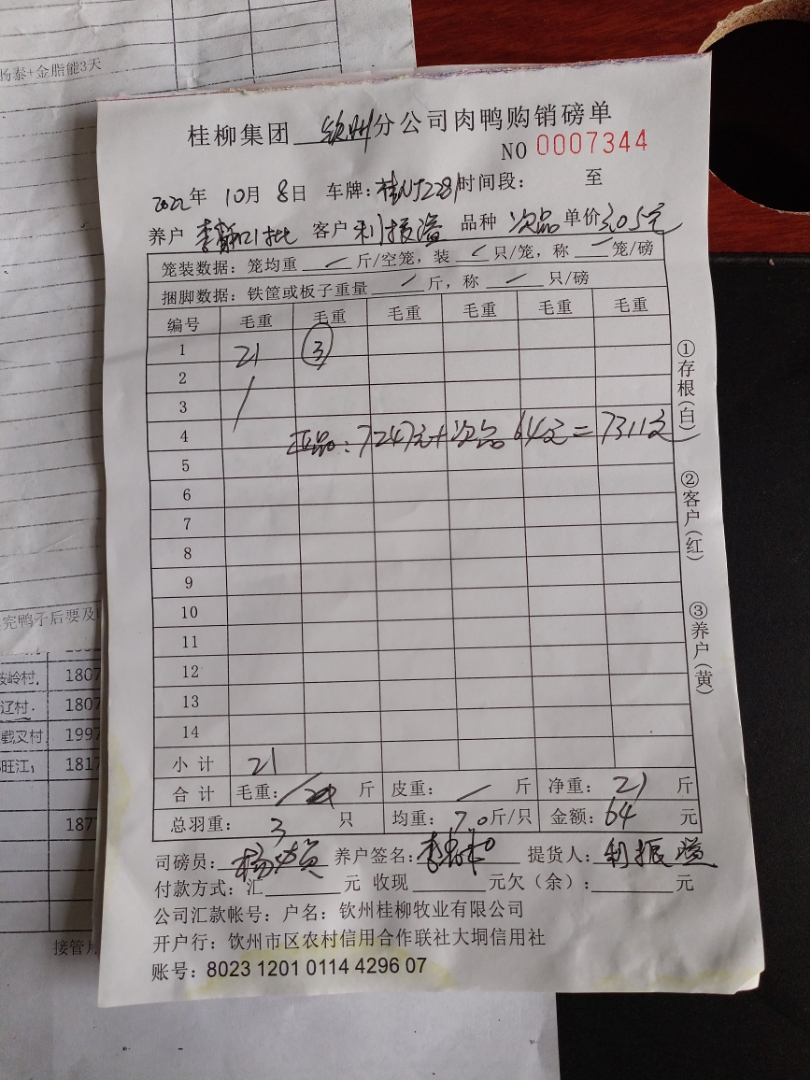 扬泰+金脂能3天
桂柳集团 钦州 分公司肉鸭购销磅单
NO 0007344
2022年 10月 8日 车牌: 时间段: 至
养户 客户 利振溢 品种 次品 单价3.05元
笼装数据: 笼均重 / 斤/空笼, 装 / 只/笼, 称 / 笼/磅
捆脚数据: 铁筐或板子重量 / 斤, 称 / 只/磅
编号 毛重 毛重 毛重 毛重 毛重 毛重
1 21 3
2
3
4
正品: 7247元+次品64元=7311元
5
6
7
8
9
10
11
12
13
14
小计 21
合计 毛重: 斤 皮重: / 斤 净重: 21 斤
总羽重: 3 只 均重: 7.0斤/只 金额: 64 元
司磅员: 养户签名: 提货人: 利振溢
付款方式: 汇 元 收现 元欠(余): 元
公司汇款帐号: 户名: 钦州桂柳牧业有限公司
开户行: 钦州市区农村信用合作联社大垌信用社
账号: 8023 1201 0114 4296 07
①存根(白)
②客户(红)
③养户(黄)
完鸭子后要及
岭村, 1807
辽村. 1807
载又村 1997
旺江; 1817
187
接管